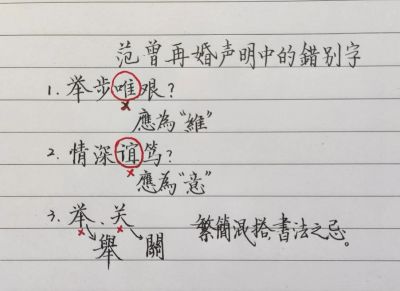 范曾再婚声明中的錯别字
1. 举步唯艰?
應為“維”
2. 情深谊笃?
應為“意”
3. 举、关 繁簡混拾,書法之忌。
舉 關